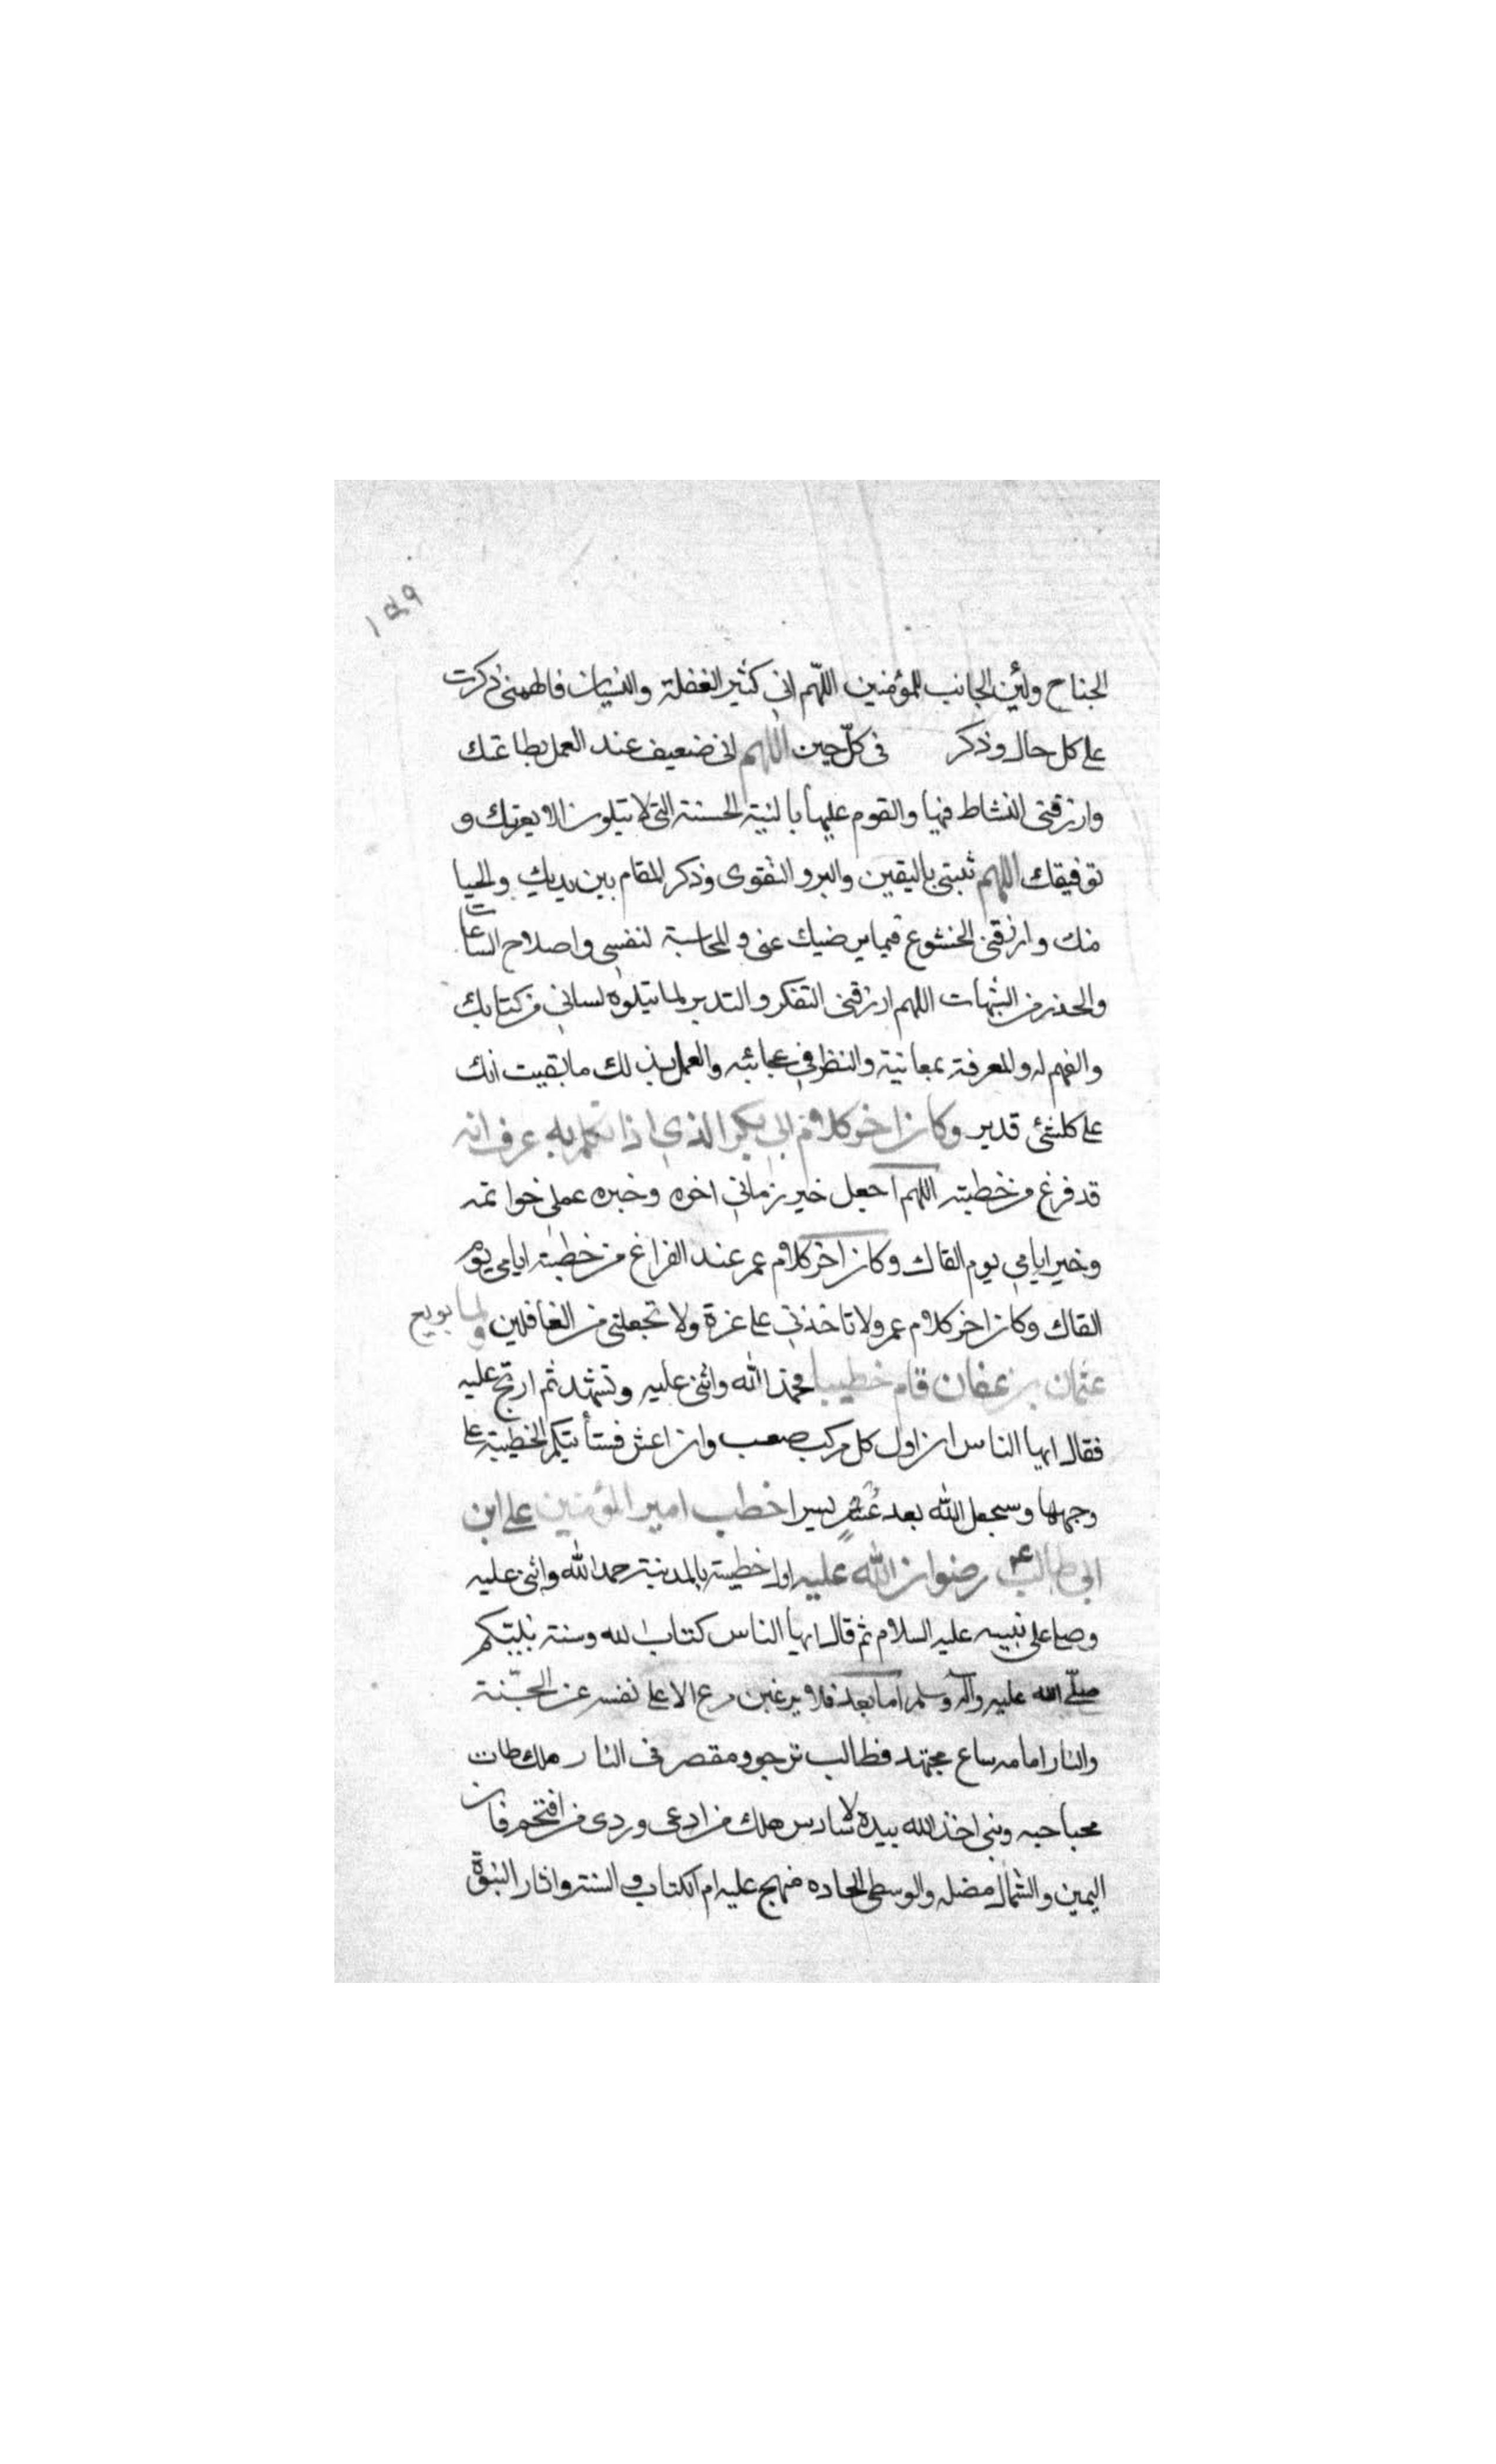 ١٥٩
الجناح ولين الجانب للمؤمنين اللهم اني كثير الغفلة والنسيان فالهمني ذكرك
على كل حال وذكر في كل حين اللهم اني ضعيف عند العمل بطاعتك
وارزقني النشاط فيها والقوم عليها بالنية الحسنة التي لا يتلون الا بعزتك و
توفيقك اللهم ثبتني باليقين والبر والتقوى وذكر المقام بين يديك والحيا
منك وارزقني الخشوع فيما يرضيك عني والمحاسبة لنفسي واصلاح الساعات
والحذر من الشبهات اللهم ارزقني التفكر والتدبر لما يتلوه لساني من كتابك
والفهم له والمعرفة بمعانيه والنظر في عجائبه والعمل بذلك ما بقيت انك
على كلشئ قدير وكان اخر كلام ابي بكر الذي اذا تكلم به عرف انه
قد فرغ من خطبته اللهم اجعل خير زماني اخره وخيره عملي خواتمه
وخير ايامي يوم القاك وكان اخر كلام عمر عند الفراغ من خطبته ايامي يوم
القاك وكان اخر كلام عمر ولا تاخذني على غرة ولا تجعلني من الغافلين ولما بويع
عثمان بن عفان قام خطيبا فحمد الله واثنى عليه وتشهد ثم ارتج عليه
فقال ايها الناس ان اول كل مركب صعب وان اعش فستأتيكم الخطبة على
وجهها وسيجعل الله بعد عسر يسرا خطب امير المؤمنين علي ابن
ابي طالب رضوان الله عليه اول خطبة بالمدينة حمد الله واثنى عليه
وصلى على نبيه عليه السلام ثم قال ايها الناس كتاب الله وسنة نبيكم
صلى الله عليه وآله وسلم اما بعد فلا يرغبن مرع الا على نفسه عن الجنة
والنار امامه ساع مجتهد فطالب يرجو ومقصر في النار ملك طات
محباحبه ونبي اخذ الله بيده لا سادس هلك من ادعى وردى من افتحم فان
اليمين والشمال مضله والوسطى الجاده منهج عليه ام الكتاب والسنة واثار النبوة